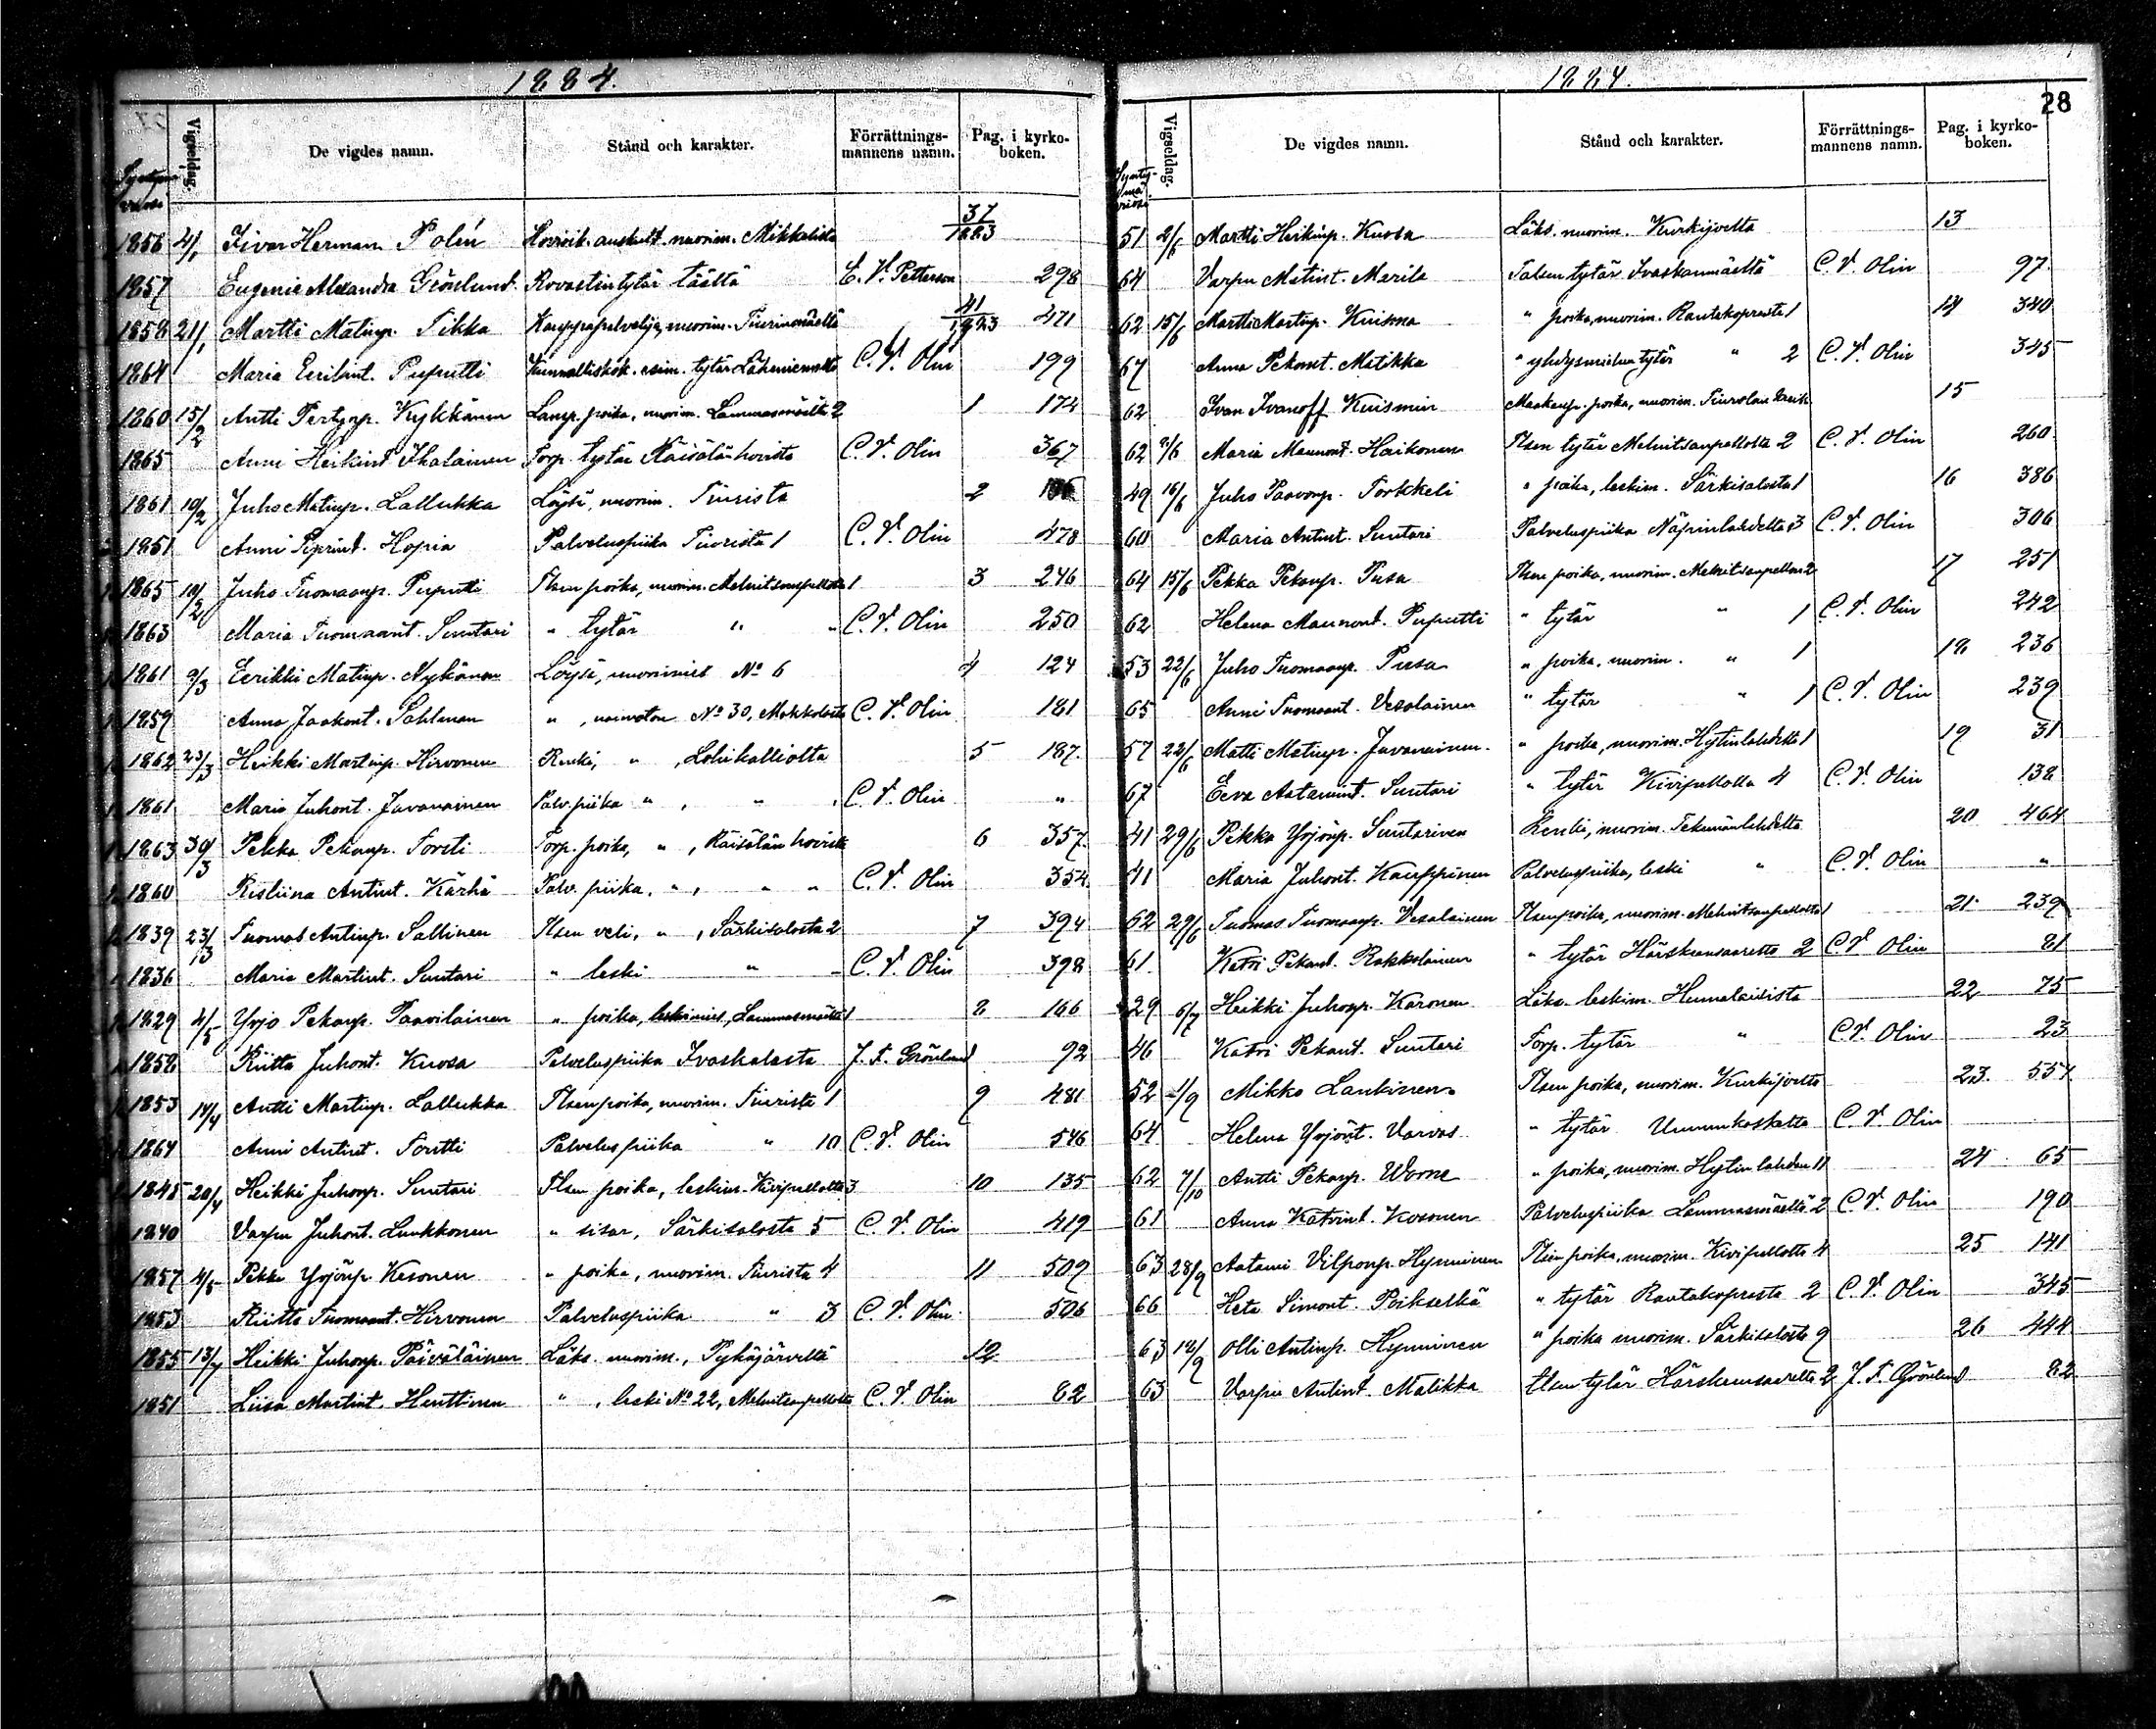 1884.
Syntymä vuosi
Vigseldag.
De vigdes namn.
Stånd och karakter.
Förrättnings-mannens namn.
Pag. i kyrko-boken.
1856 4/1 Iivar Herman Polén Hovioik. auskult. nuorim. Mikkelistä 37/1883
1857 Eugenie Alexandra Grönlund Rovastin tytär täältä E. V. Petterson 298
1858 21/1 Martti Matinp. Tikka Kauppapalvelija, nuorim. Tiurinmäeltä 41/1883 471
1864 Maria Eerikint. Puputti Kunnalliskok. esim. tytär C. V. Olin 199
1860 15/2 Antti Pertynp. Kykkänen Lamp. poika, nuorim. Lammasmäeltä 2 1 174
1865 Anni Heikint. Ihalainen Torp. tytär Räisälän hovista C. V. Olin 367
1861 10/2 Juho Matinp. Lallukka Löysi, nuorim. Tiurista 2
1851 Anni Piprint. Hopia Palveluspiika Tiurista 1 C. V. Olin 478
1865 10/2 Juho Tuomaanp. Puputti Tlsen poika, nuorim. Melnitsanpellolta 1 3 246
1863 Maria Tuomaant. Suutari " tytär " " C. V. Olin 250
1861 9/3 Eerikki Matinp. Nykänen Löysi, nuorimies No 6 4 124
1859 Anna Jaakont. Pohlman " , naimaton No 30, Makkolasta C. V. Olin 181
1862 23/3 Heikki Martinp. Hirvonen Renki, " , Lohikalliolta 5 187.
1861 Maria Juhont. Javanainen Palv. piika " , " C. V. Olin "
1863 30/3 Pekka Pekanp. Torsti Torp. poika, " , Räisälän hovista 6 357.
1860 Ristiina Antint. Kärhä Palv. piika, " , " " C. V. Olin 354
1839 23/3 Tuomas Antinp. Sallinen Tlsen veli, " , Särkisalosta 2 7 394
1836 Maria Martint. Suutari " leski " C. V. Olin 398
1829 4/5 Yrjö Pekanp. Paavilainen " poika, leskimies, Lammasmäeltä 1 8 166
1858 Riitta Juhont. Kuosa Palveluspiika Ivaskalasta J. F. Grönlund 92
1853 14/4 Antti Martinp. Lallukka Tlsen poika, nuorim. Tiurista 1 9 481
1864 Anni Antint. Torstti Palveluspiika " 10 C. V. Olin 546
1845 20/4 Heikki Juhonp. Suutari Tlsen poika, leskim. Kivipellolta 3 10 135
1840 Varpu Juhont. Lunkkonen " sisar, Särkisalosta 5 C. V. Olin 419
1857 4/5 Pekka Yrjönp. Kesonen " poika, nuorim. Tiurista 4 11 509
1853 Riitta Tuomaant. Hirvonen Palveluspiika " 3 C. V. Olin 506
1855 13/4 Heikki Juhonp. Päiväläinen Läks. nuorim., Pyhäjärveltä 12.
1851 Liisa Martint. Henttinen " , leski No 22, Melnitsanpellolta C. V. Olin 82
1884.
28
Syntymä vuosi
Vigseldag.
De vigdes namn.
Stånd och karakter.
Förrättnings-mannens namn.
Pag. i kyrko-boken.
51 2/6 Martti Heikinp. Kuosa Läks. nuorim. Kurkijoelta 13
64 Varpu Matint. Marila Talsen tytär Ivaskanmäeltä C. V. Olin 97.
62 15/6 Martti Martinp. Kuisma " poika, nuorim. Rautakoprasta 1 14 340
67 Anna Pekont. Matikka " yhdysmiehen tytär " 2 C. V. Olin 345
62 Ivan Ivanoff Kuismin Maakaup. poika, nuorim. 15
62 9/6 Maria Maunont. Haikonen Tlsen tytär Melnitsanpellolta 2 C. V. Olin 260
49 16/6 Juho Paavonp. Torkkeli " poika, leskim. Särkisalosta 1 16 386
60 Maria Antint. Suutari Palveluspiika Näpinlahdelta 3 C. V. Olin 306
64 15/6 Pekka Pekanp. Pusa Tlsen poika, nuorim. Melnitsanpellon 2 17 251
62 Helena Maunont. Puputti " tytär " 1 C. V. Olin 242
53 22/6 Juho Tuomaanp. Pusa " poika, nuorim. " 1 18 236
65 Anni Tuomaant. Vesalainen " tytär " 1 C. V. Olin 239
57 22/6 Matti Matinp. Javanainen. " poika, nuorim. Hytinlahdelta 1 19 31
67 Eeva Aatamint. Suutari " tytär Kivipellolta 4 C. V. Olin 138
41 29/6 Pekka Yrjönp. Suutarinen Renki, nuorim. Tekumänlahdelta 20 464
41 Maria Juhont. Kauppinen Palveluspiika, leski " C. V. Olin "
62 29/6 Tuomas Tuomaanp. Vesalainen Tlsen poika, nuorim. Melnitsanpellolta 1 21 239
61 Katri Pekant. Rakkolainen " tytär Härskeensaarelta 2 C. V. Olin 81
29 6/7 Heikki Juhonp. Karonen Läks. leskim. Humalaisista 22 75
46 Katri Pekant. Suutari Torp. tytär " C. V. Olin 23
52 1/9 Mikko Laukinen Tlsen poika, nuorim. Kurkijoelta 23. 557
64 Helena Yrjönt. Varvas " tytär Ummukaskelta C. V. Olin
62 7/10 Antti Pekanp. Worne " poika, nuorim. Hytinlahden 11 24 65
61 Anna Katrint. Kosonen Palveluspiika Lammasmäeltä 2 C. V. Olin 190
63 28/9 Aatami Vilponp. Hynninen Tlsen poika, nuorim. Kivipellolta 4 25 141
66 Heta Simont. Poikselkä " tytär Rautakoprasta 2 C. V. Olin 345
63 14/9 Olli Antinp. Hynninen " poika nuorim. Särkisalosta 9 26 444
63 Varpu Antint. Matikka tlsen tytär Härskeensaarelta 2 J. F. Grönlund 82